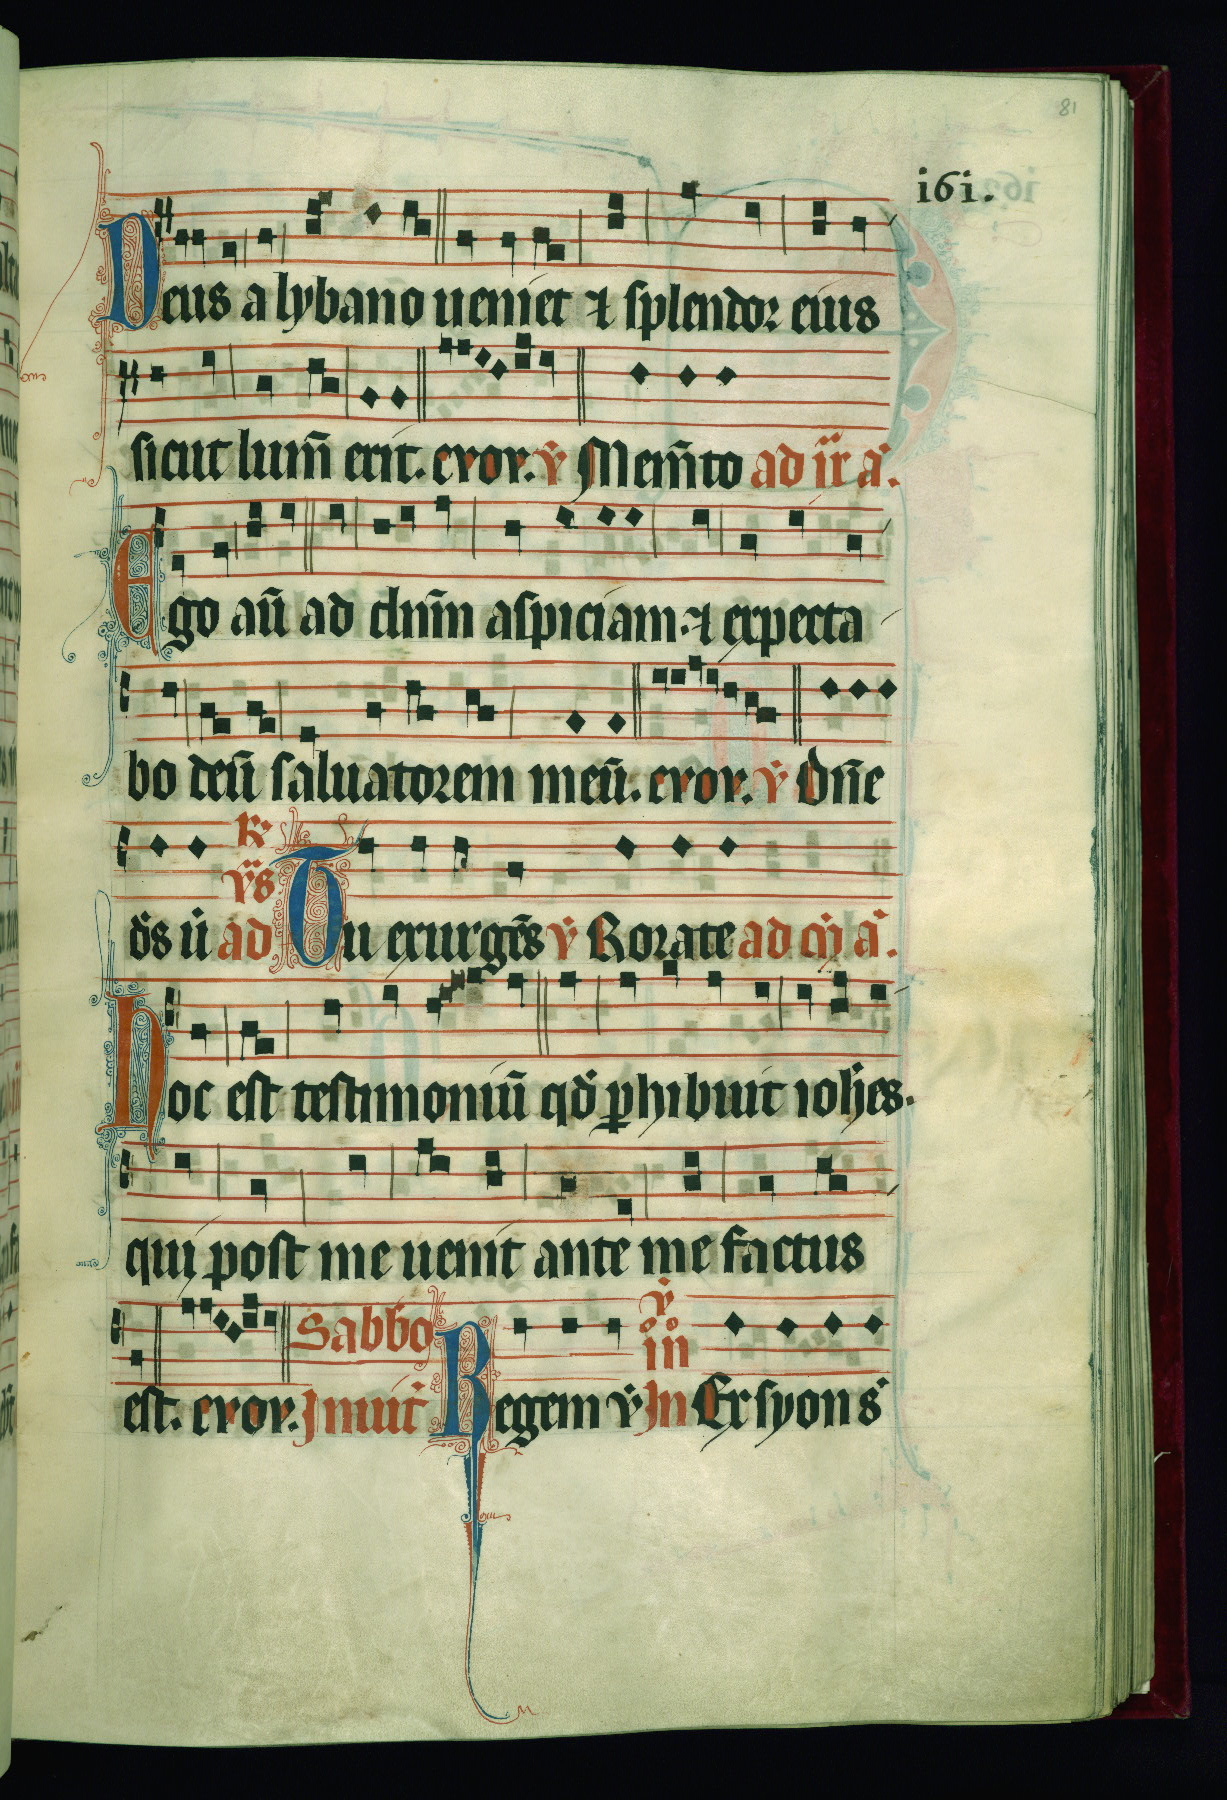 81
i6i.
Deus a lybano ueniet ⁊ splendor eius
sicut lum̄ erit. evov. v̇ Mem̄to ad iır a̓.
Ego aū ad dnm̄ aspiciam. ⁊ expecta
bo deū saluatorem meū. evov. v̇ Dn̄e
R̓
v̇s
ds u̓ ad Tu exurgēs v̇ Rorate ad a̓.
Hoc est testimoniū qd̓ ꝑhibuit ioh̄es.
qui post me uenit ante me factus
Sabb̓o v̇
in
est. evov. Inuit̓ Regem v̇ In Ex syon s̓